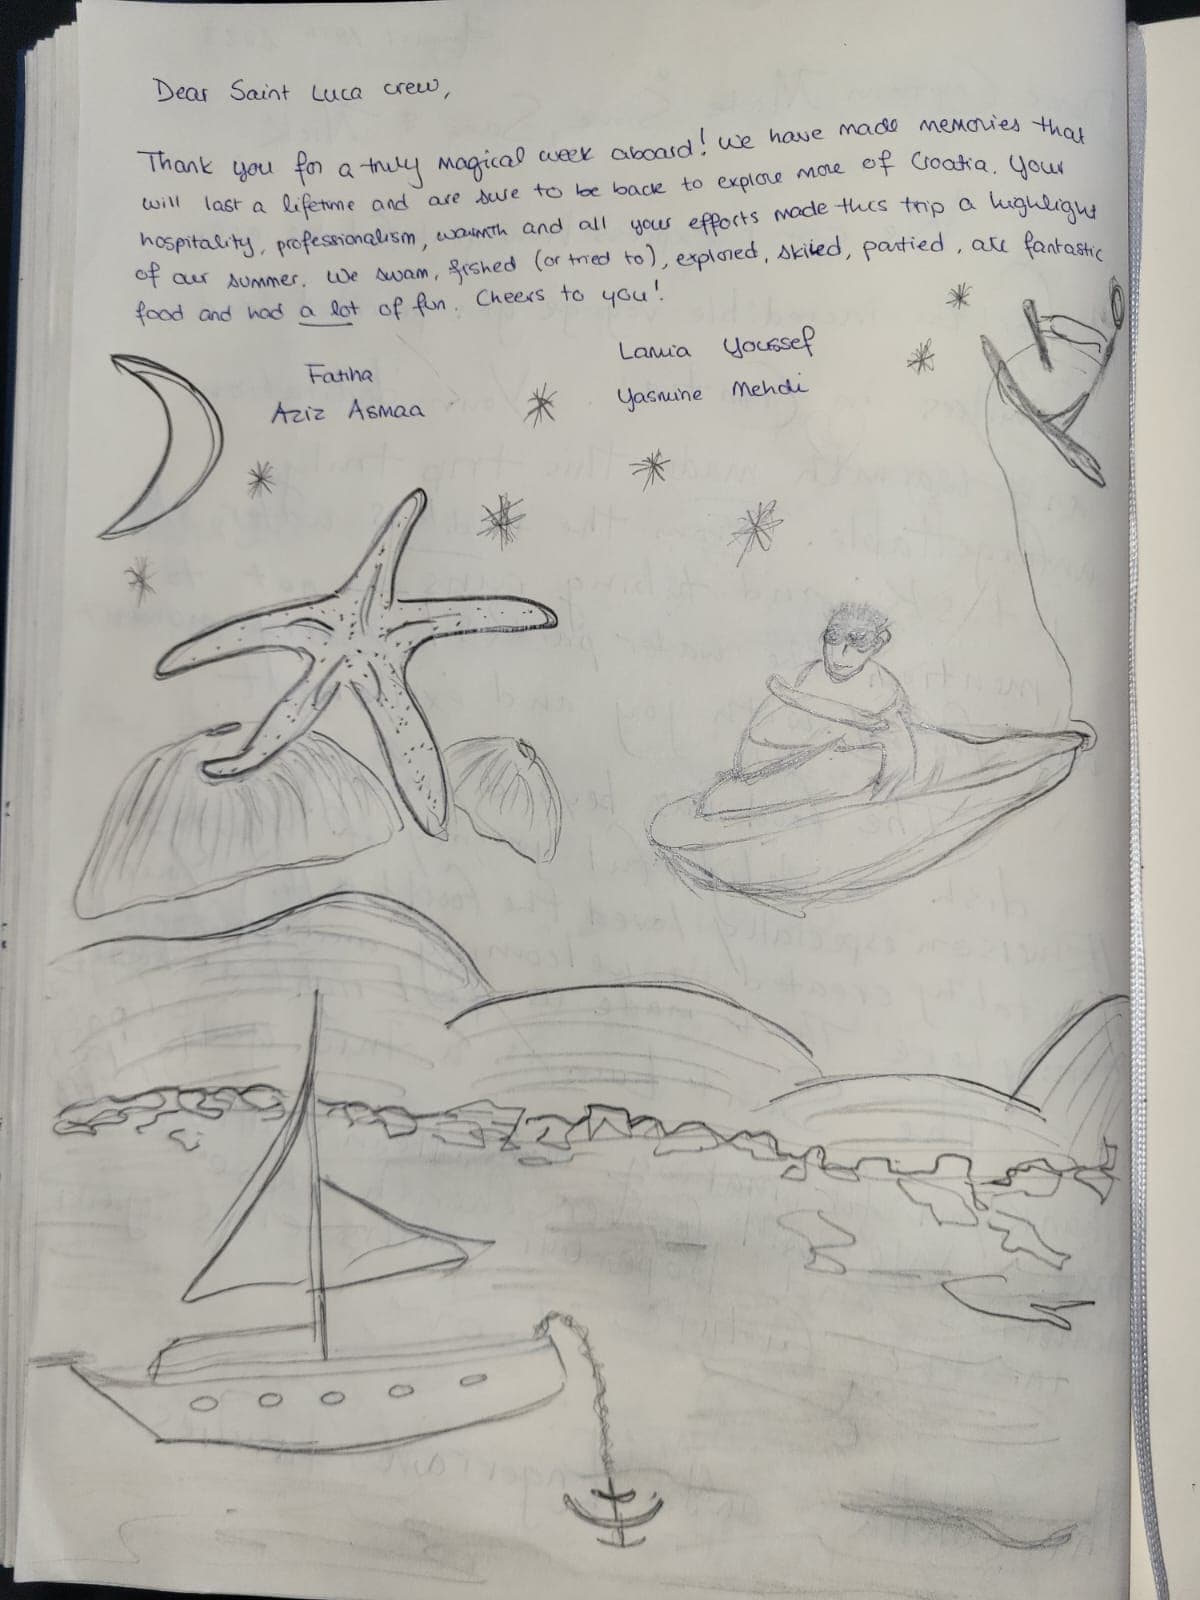 Dear Saint Luca crew,
Thank you for a truly magical week aboard! we have made memories that
will last a lifetime and are sure to be back to explore more of Croatia. Your
hospitality, professionalism, warmth and all your efforts made this trip a highlight
of our summer. We swam, fished (or tried to), explored, skiied, partied, ate fantastic
food and had a lot of fun. Cheers to you!
Fatiha
Aziz Asmaa
Lamia Youssef
Yasmine Mehdi